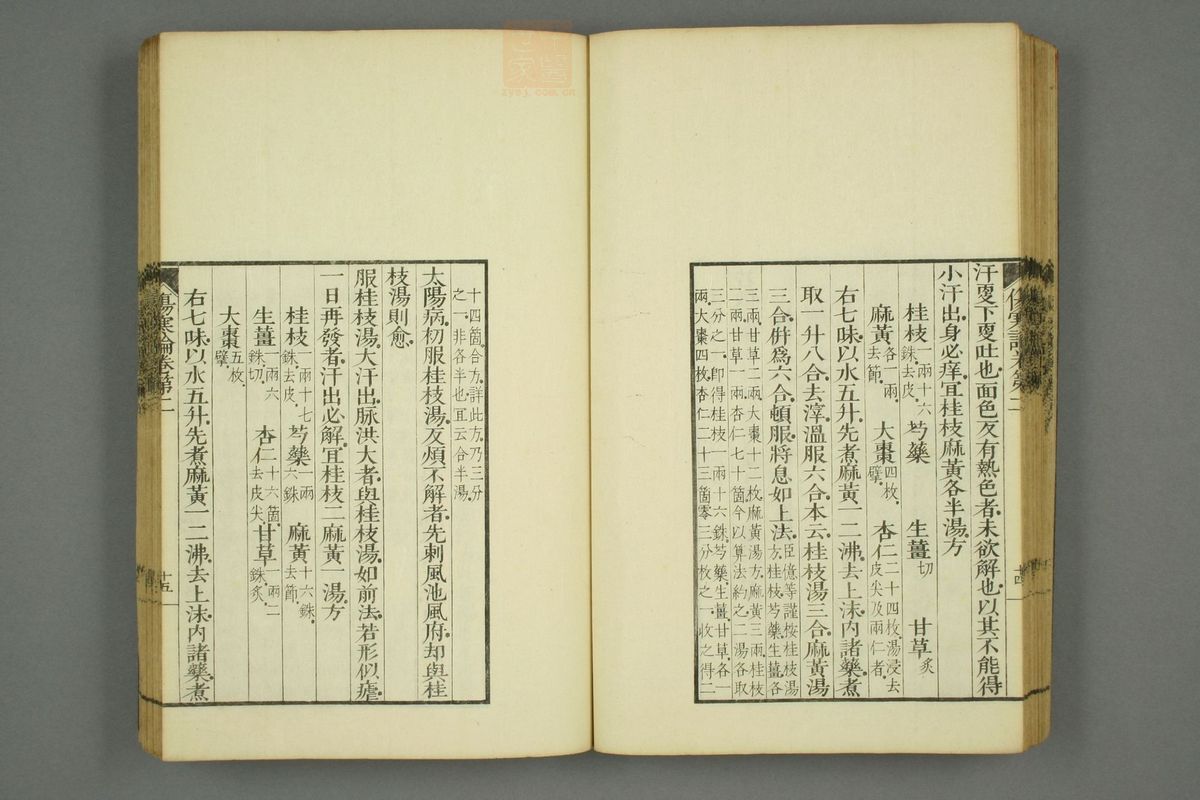 汗更下更吐也面色反有熱色者未欲解也以其不能得
小汗出身必痒宜桂枝麻黃各半湯方
桂枝一兩十六銖去皮 芍藥 生薑切 甘草炙
麻黃各一兩去節 大棗四枚擘 杏仁二十四枚湯浸去皮尖及兩仁者
右七味以水五升先煮麻黃一二沸去上沫內諸藥煮
取一升八合去滓溫服六合本云桂枝湯三合麻黃湯
三合併爲六合頓服將息如上法臣億等謹按桂枝湯方桂枝芍藥生薑各
三兩甘草二兩大棗十二枚麻黃湯方麻黃三兩桂枝二兩甘草一兩杏仁七十箇今以算法約之二湯各取
三分之一卽得桂枝一兩十六銖芍藥生薑甘草各一兩大棗四枚杏仁二十三箇零三分枚之一收之得二
十四
十四箇合方詳此方乃三分之一非各半也宜云合半湯
太陽病初服桂枝湯反煩不解者先刺風池風府却與桂
枝湯則愈
服桂枝湯大汗出脉洪大者與桂枝湯如前法若形似瘧
一日再發者汗出必解宜桂枝二麻黃一湯方
桂枝一兩十七銖去皮 芍藥一兩六銖 麻黃十六銖去節
生薑一兩六銖切 杏仁十六箇去皮尖 甘草一兩二銖炙
大棗五枚擘
右七味以水五升先煮麻黃一二沸去上沫內諸藥煮
傷寒論卷第二
十五